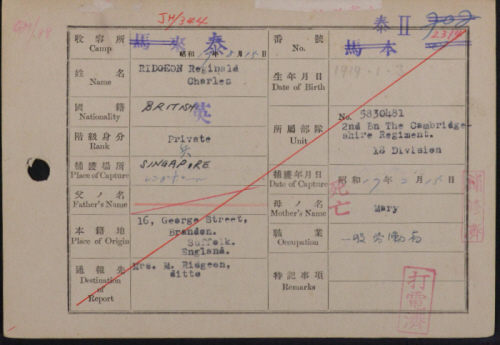 JH/344
泰 II
収容所
Camp
馬来 泰
昭和 17年 2月 15日
番號
No.
馬本
2314
姓名
Name
RIDGEON Reginald
Charles
生年月日
Date of Birth
1914.1.3
國籍
Nationality
BRITISH
英
階級身分
Rank
Private
所屬部隊
Unit
No. 5830481
2nd Bn The Cambridge-
shire Regiment.
18 Division
捕獲場所
Place of Capture
SINGAPORE
捕獲年月日
Date of Capture
昭和 17年 2月 15日
死亡
父ノ名
Father's Name
母ノ名
Mother's Name
Mary
本籍地
Place of Origin
16, George Street,
Brandon.
Suffolk.
England.
職業
Occupation
一般労働者
通報先
Destination
of
Report
Mrs. M. Ridgeon,
ditto
特記事項
Remarks
打電済